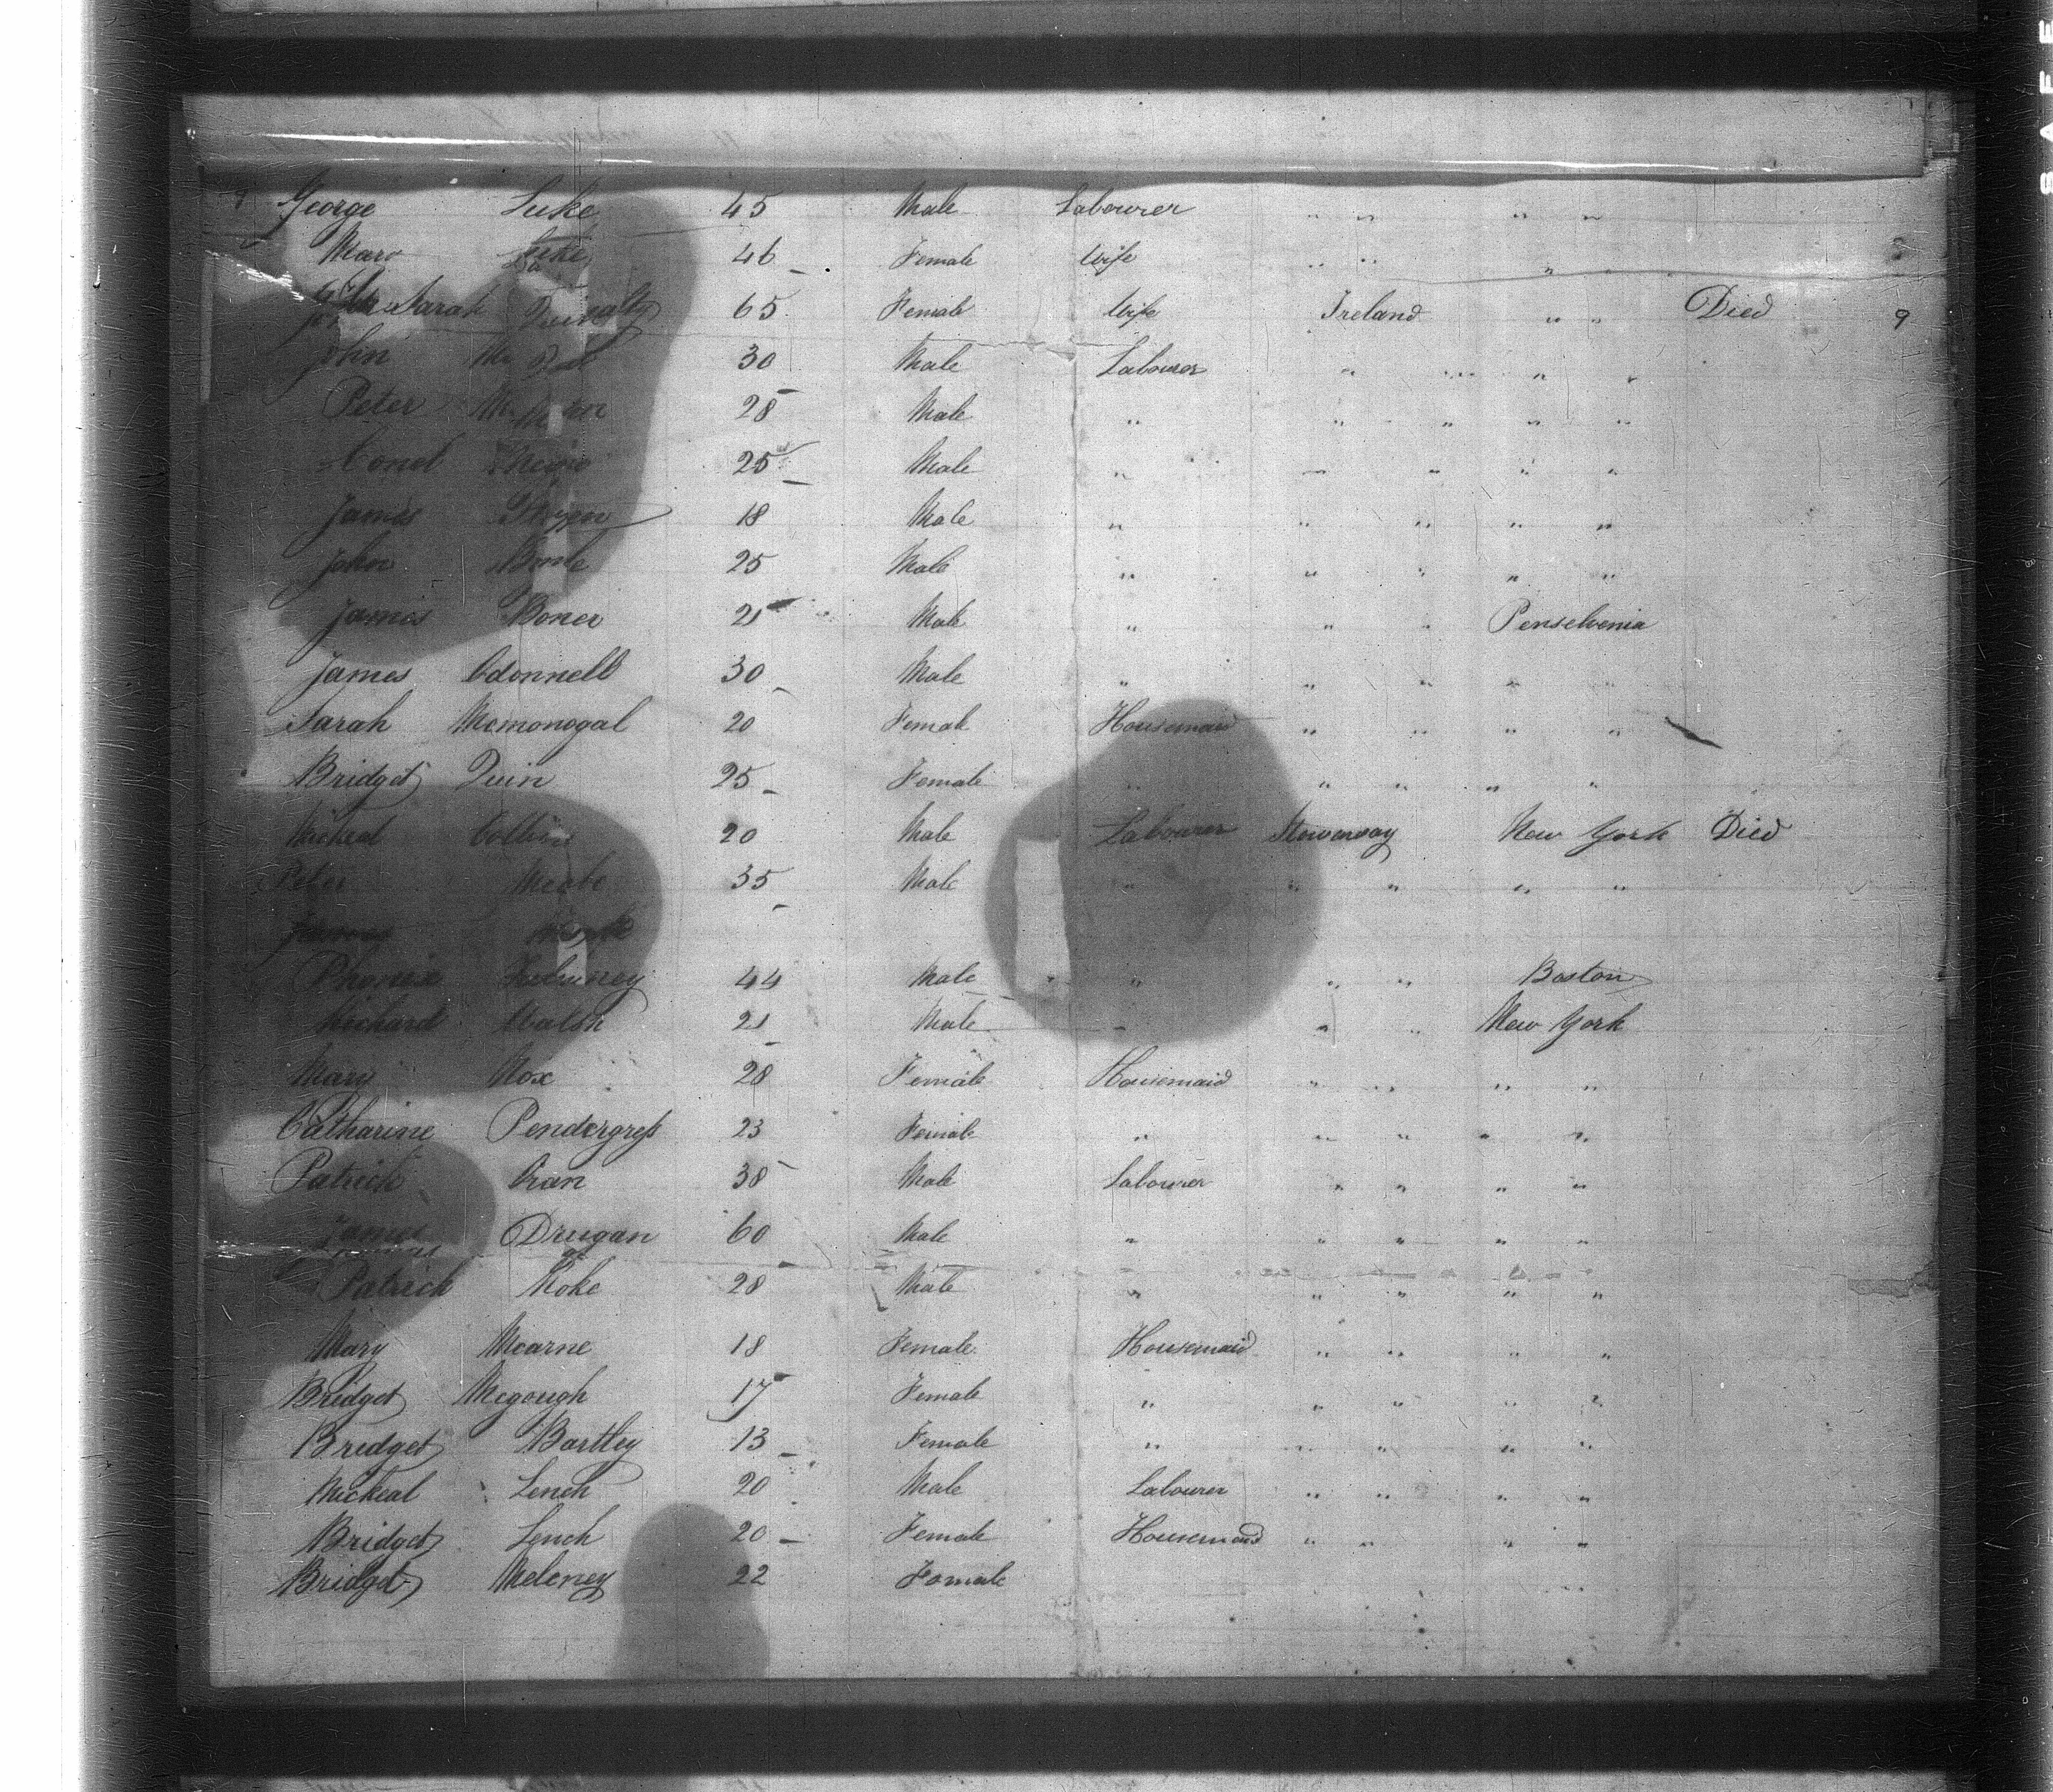 George Luke 45 Male Labourer " " " "
Mary Luke 46 Female Wife " " " "
Sarah 65 Female Wife Ireland " " Died 9
John 30 Male Labourer " " " "
Peter 28 Male " " " " "
25 Male " " " " "
James 18 Male " " " " "
John 25 Male " " " " "
James Boner 21 Male " " " Penselvenia
James Odonnell 30 Male " " " " "
Sarah Mcmonogal 20 Female Housemaid " " " "
Bridget Quin 25 Female " " " " "
Micheal Collins 20 Male Labourer Stowaway New York Died
Peter Mcabe 35 Male " " " " "
James
44 Male " " " Boston
Richard Walsh 21 Male " " " New York
Mary Nox 28 Female Housemaid " " " "
Catharine Pendergress 23 Female " " " " "
Patrick Oran 38 Male Labourer " " " "
James Drugan 60 Male " " " " "
Patrick Roke 28 Male " " " " "
Mary Mcarne 18 Female Housemaid " " " "
Bridget Mcgough 17 Female " " " " "
Bridget Bartley 13 Female " " " " "
Micheal Lench 20 Male Labourer " " " "
Bridget Lench 20 Female Housemaid " " " "
Bridget Meleney 22 Female